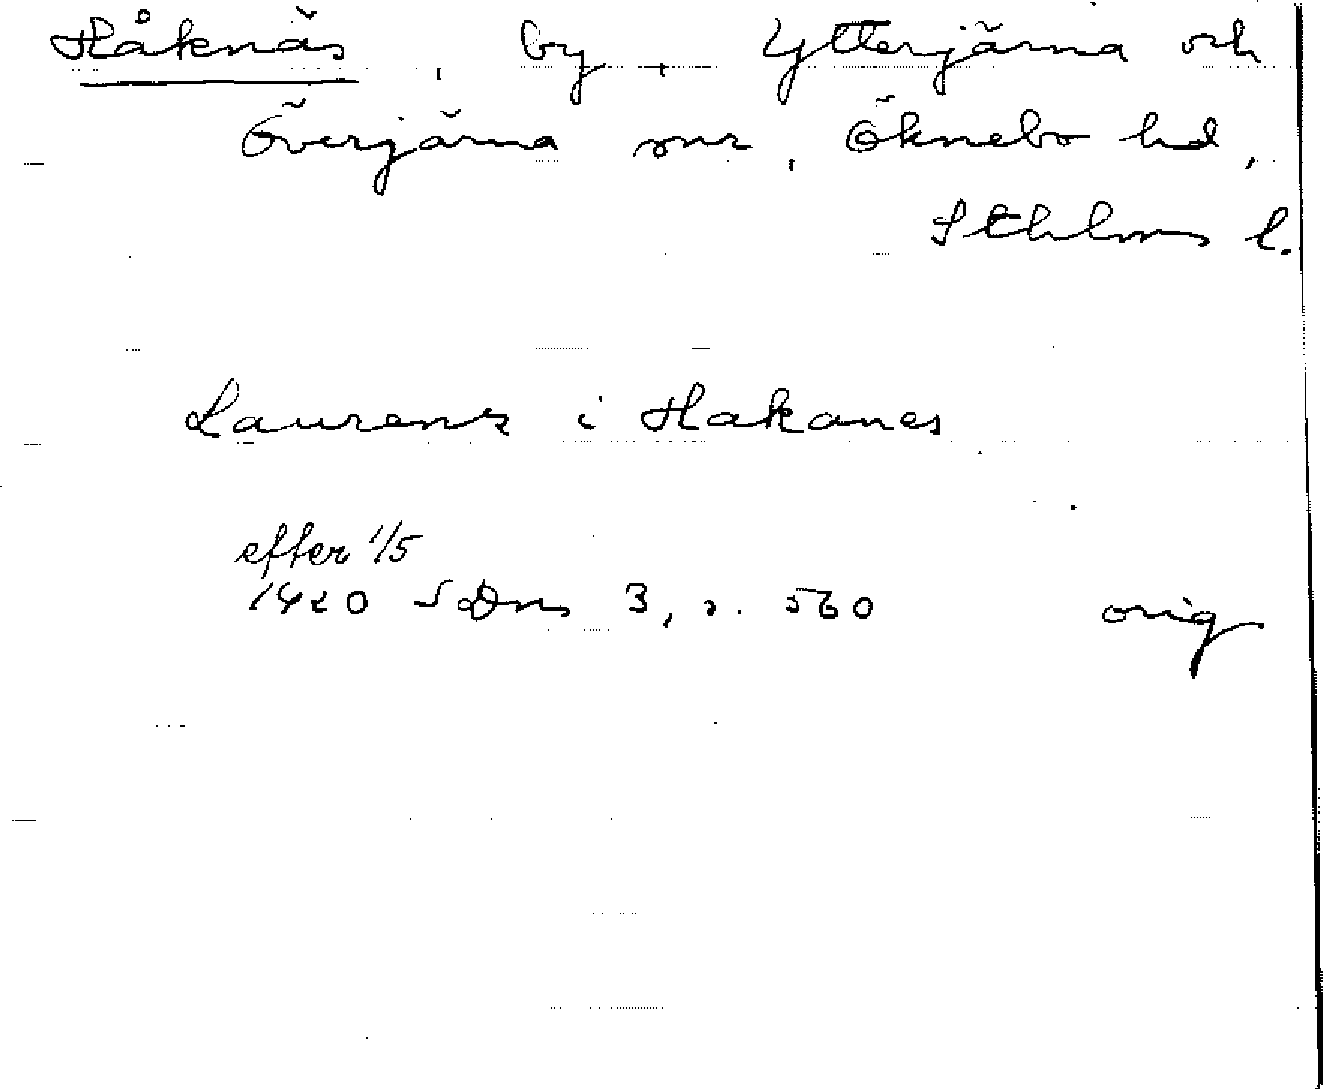 Håknäs, by, Ytterjärna och
Överjärna snr, Öknebo hd,
Sthlms l.
Laurens i Hakanes
efter 1/5
1420 SDns 3, s. 560 orig